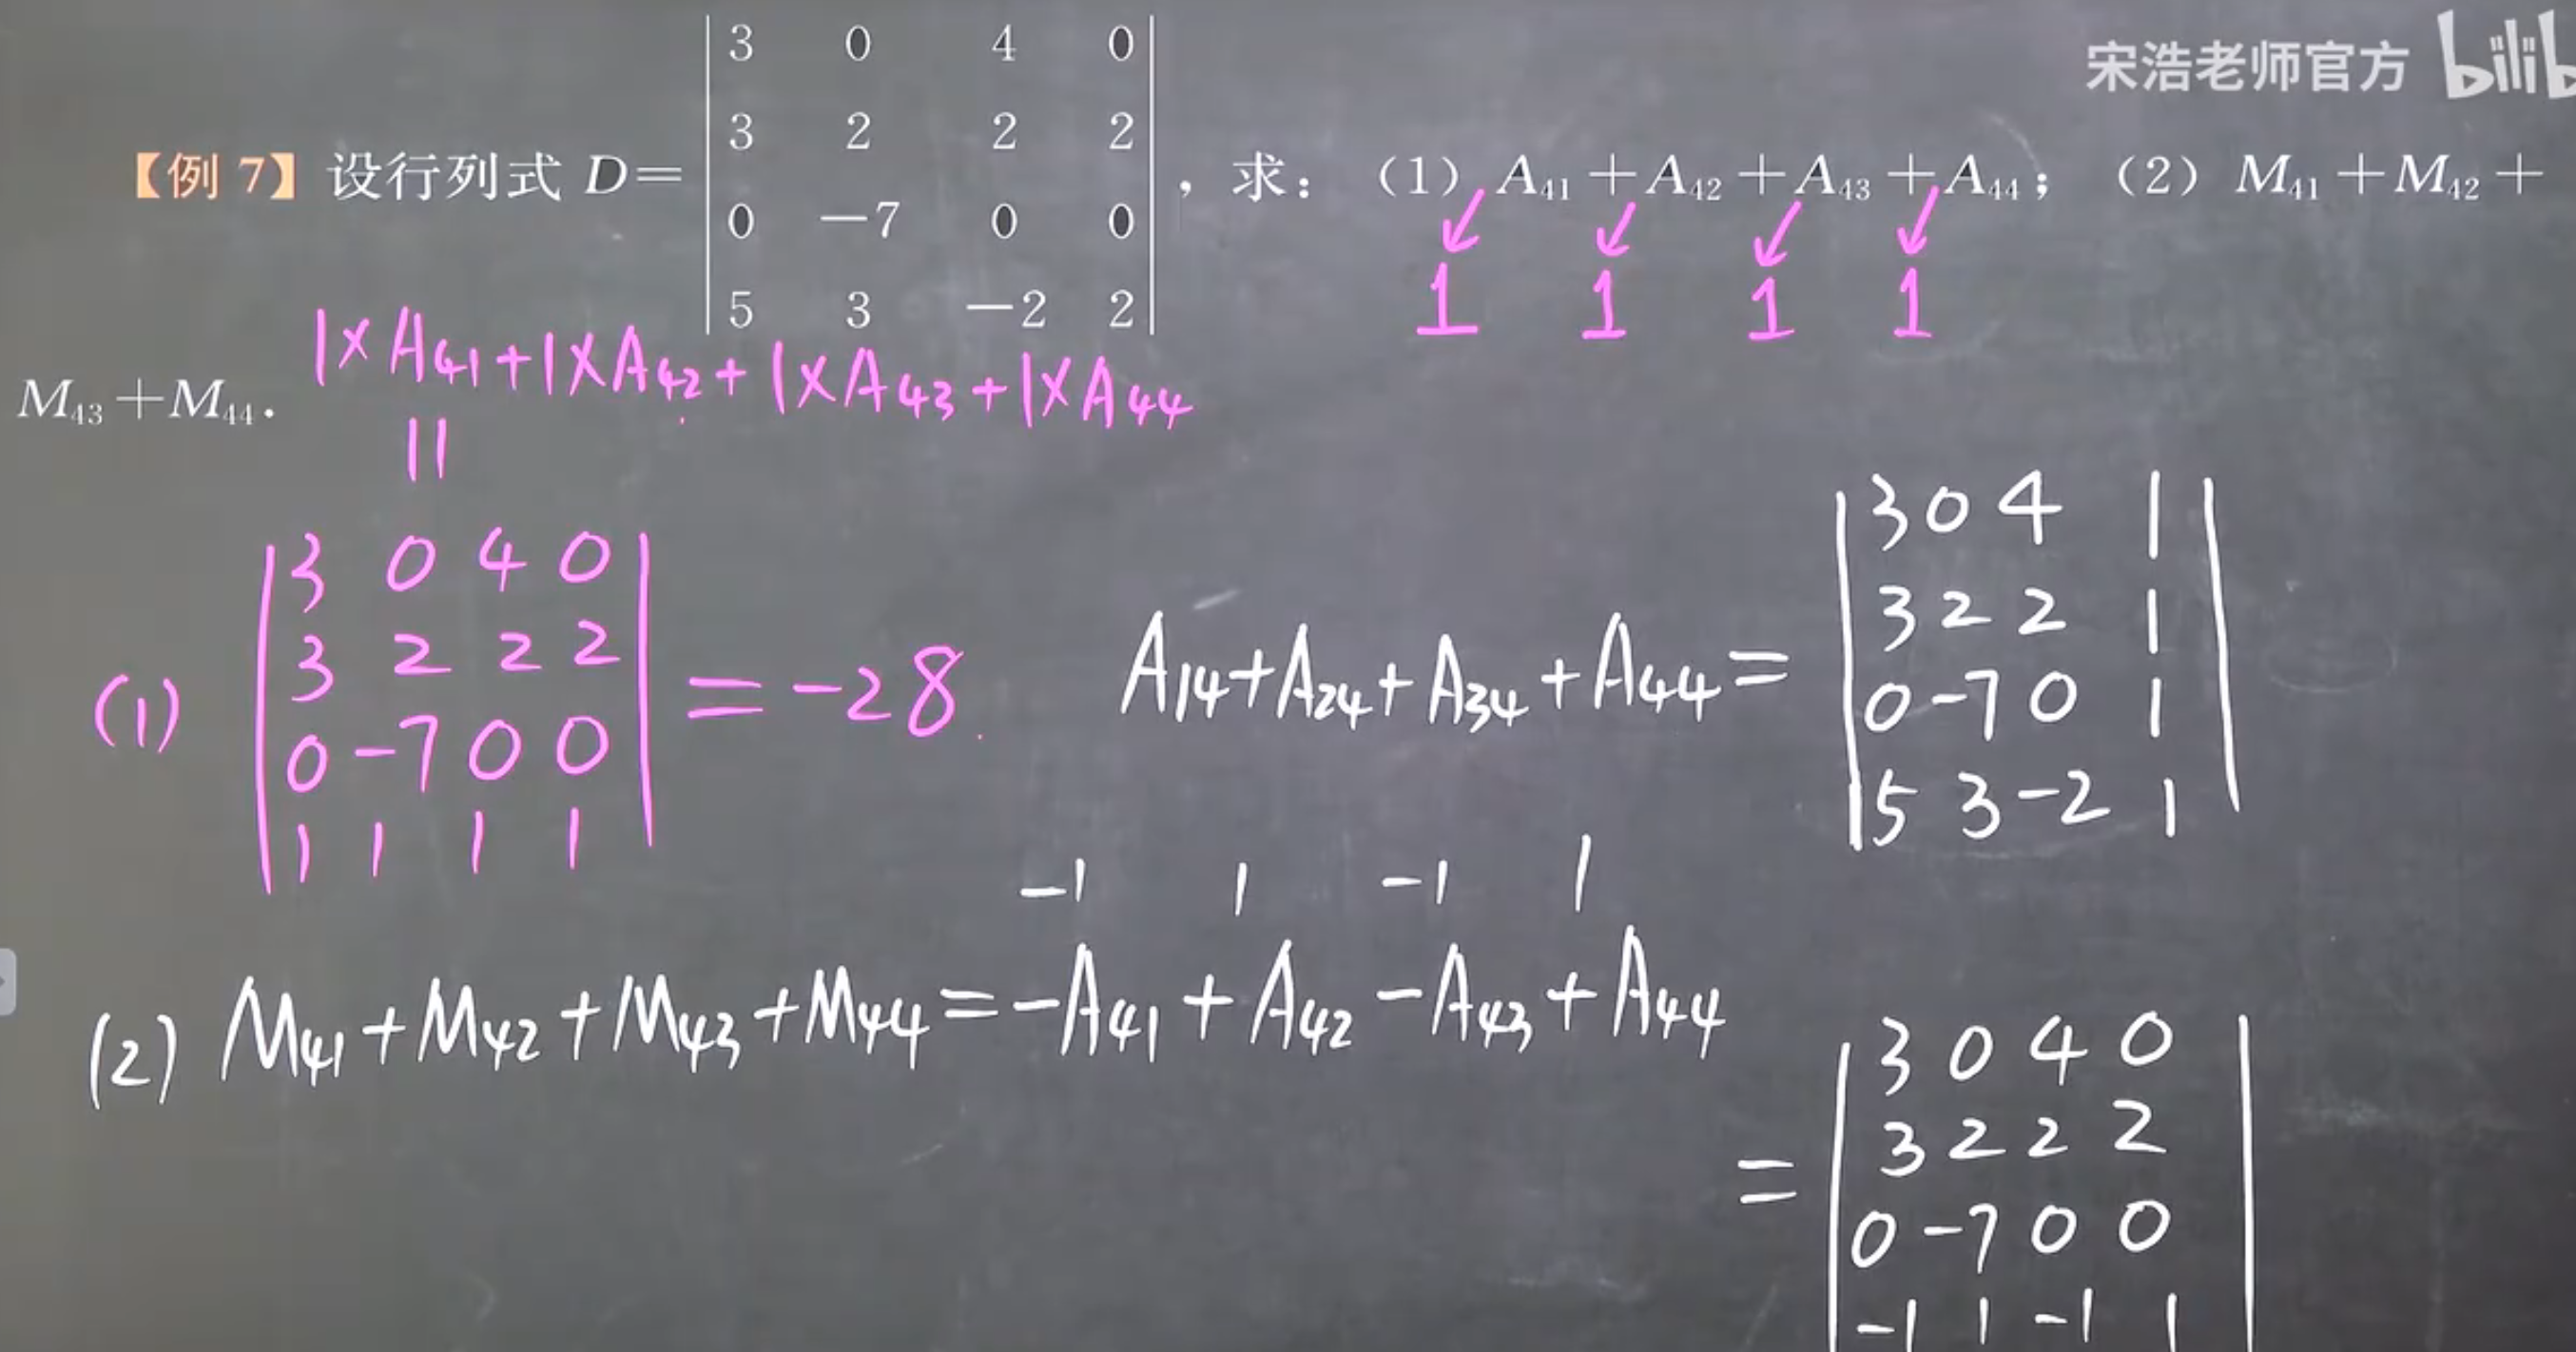 宋浩老师官方 bilib
3 0 4 0
3 2 2 2
【例 7】设行列式 D= , 求: (1) A₄₁+A₄₂+A₄₃+A₄₄; (2) M₄₁+M₄₂+
0 −7 0 0
1 1 1 1
5 3 −2 2
1×A₄₁+1×A₄₂+1×A₄₃+1×A₄₄
M₄₃+M₄₄.
||
(1)
3 0 4 0
3 2 2 2
0 -7 0 0
1 1 1 1
=-28
A₁₄+A₂₄+A₃₄+A₄₄=
3 0 4 1
3 2 2 1
0 -7 0 1
5 3 -2 1
-1 1 -1 1
(2) M₄₁+M₄₂+M₄₃+M₄₄=-A₄₁+A₄₂-A₄₃+A₄₄
=
3 0 4 0
3 2 2 2
0 -7 0 0
-1 1 -1 1